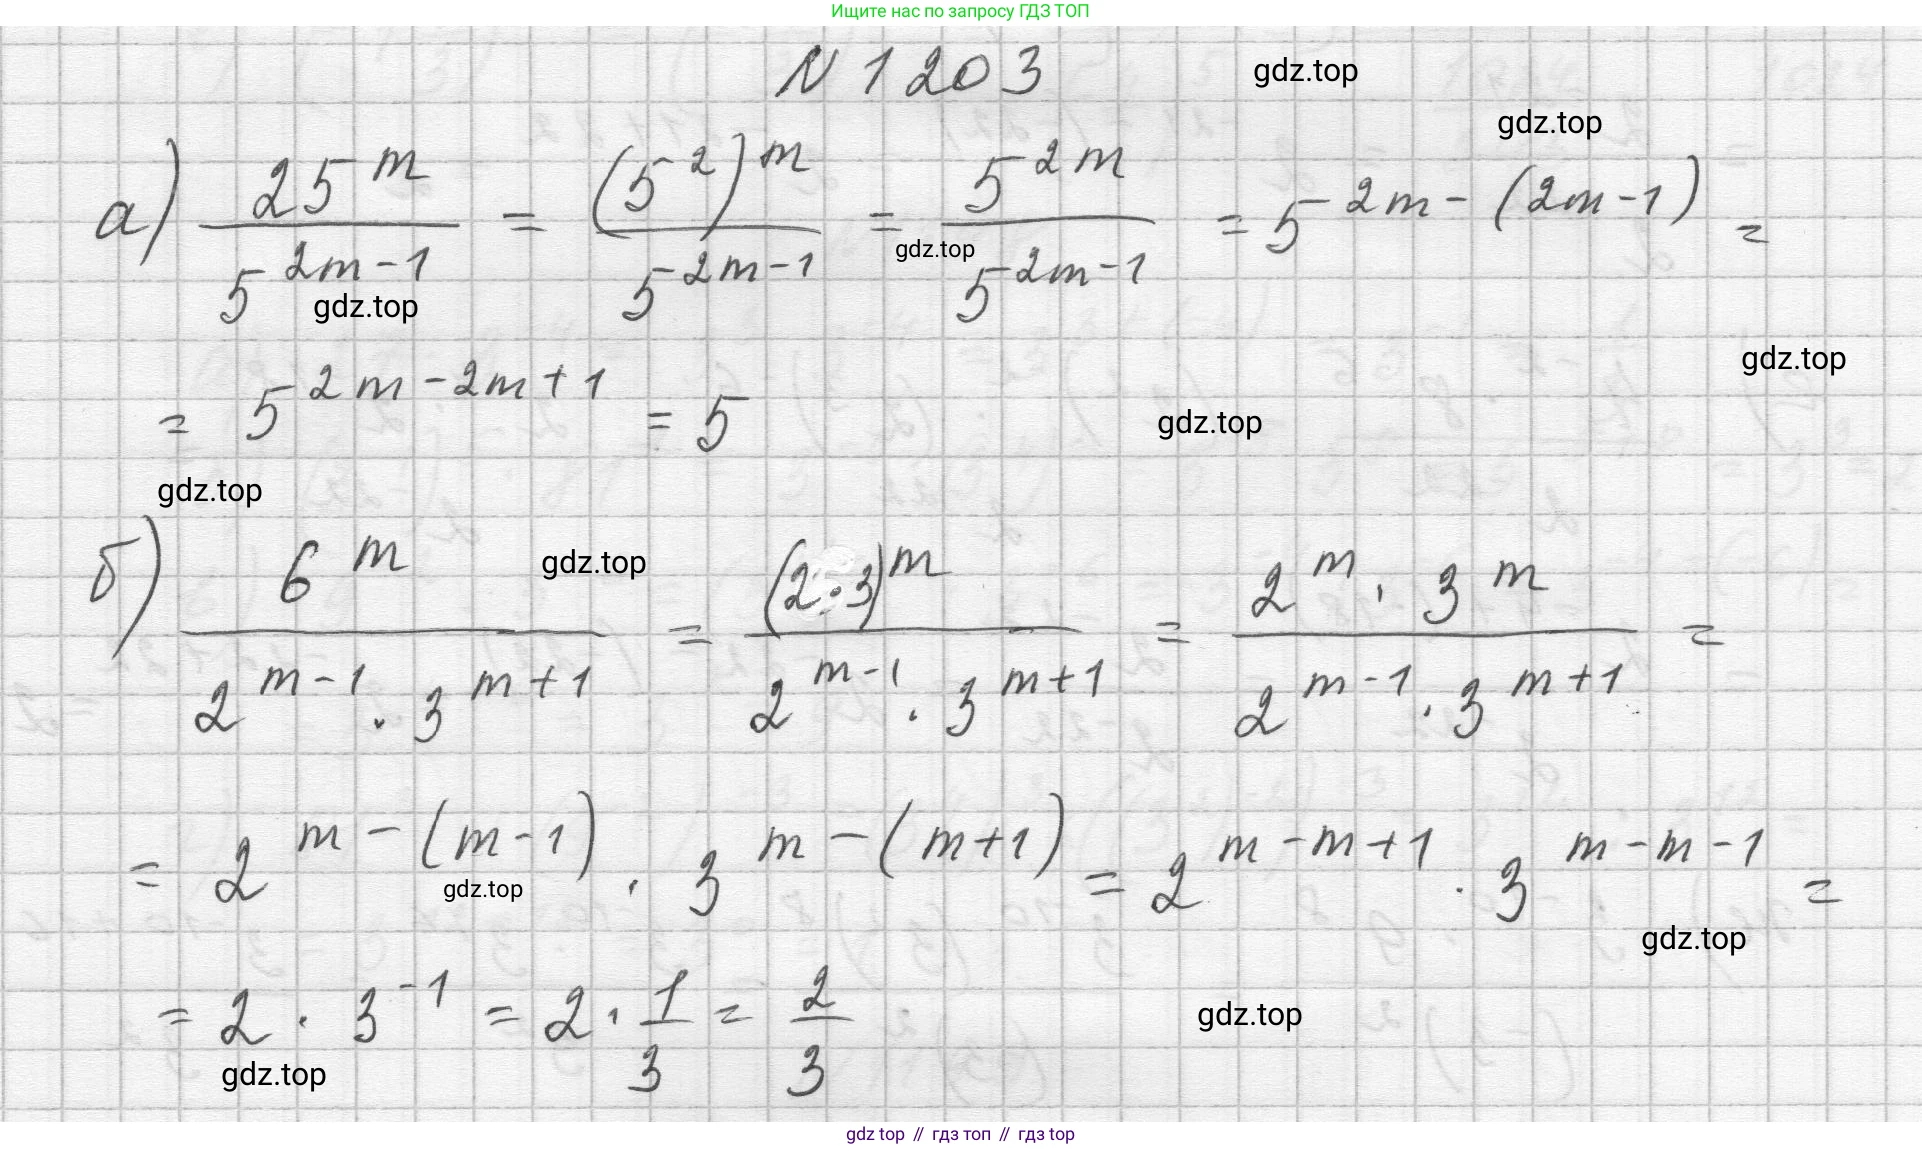 Ищите нас по запросу ГДЗ ТОП
N 1203
gdz.top
gdz.top
а) 25^m / 5^(2m-1) = (5^2)^m / 5^(2m-1) = 5^(2m) / 5^(2m-1) = 5^(2m-(2m-1)) =
gdz.top
gdz.top
gdz.top
= 5^(2m-2m+1) = 5
gdz.top
gdz.top
б) 6^m / (2^(m-1) · 3^(m+1)) = (2·3)^m / (2^(m-1) · 3^(m+1)) = (2^m · 3^m) / (2^(m-1) · 3^(m+1)) =
gdz.top
= 2^(m-(m-1)) · 3^(m-(m+1)) = 2^(m-m+1) · 3^(m-m-1) =
gdz.top
gdz.top
= 2 · 3^(-1) = 2 · 1/3 = 2/3
gdz.top
gdz.top
gdz top // гдз топ // гдз top